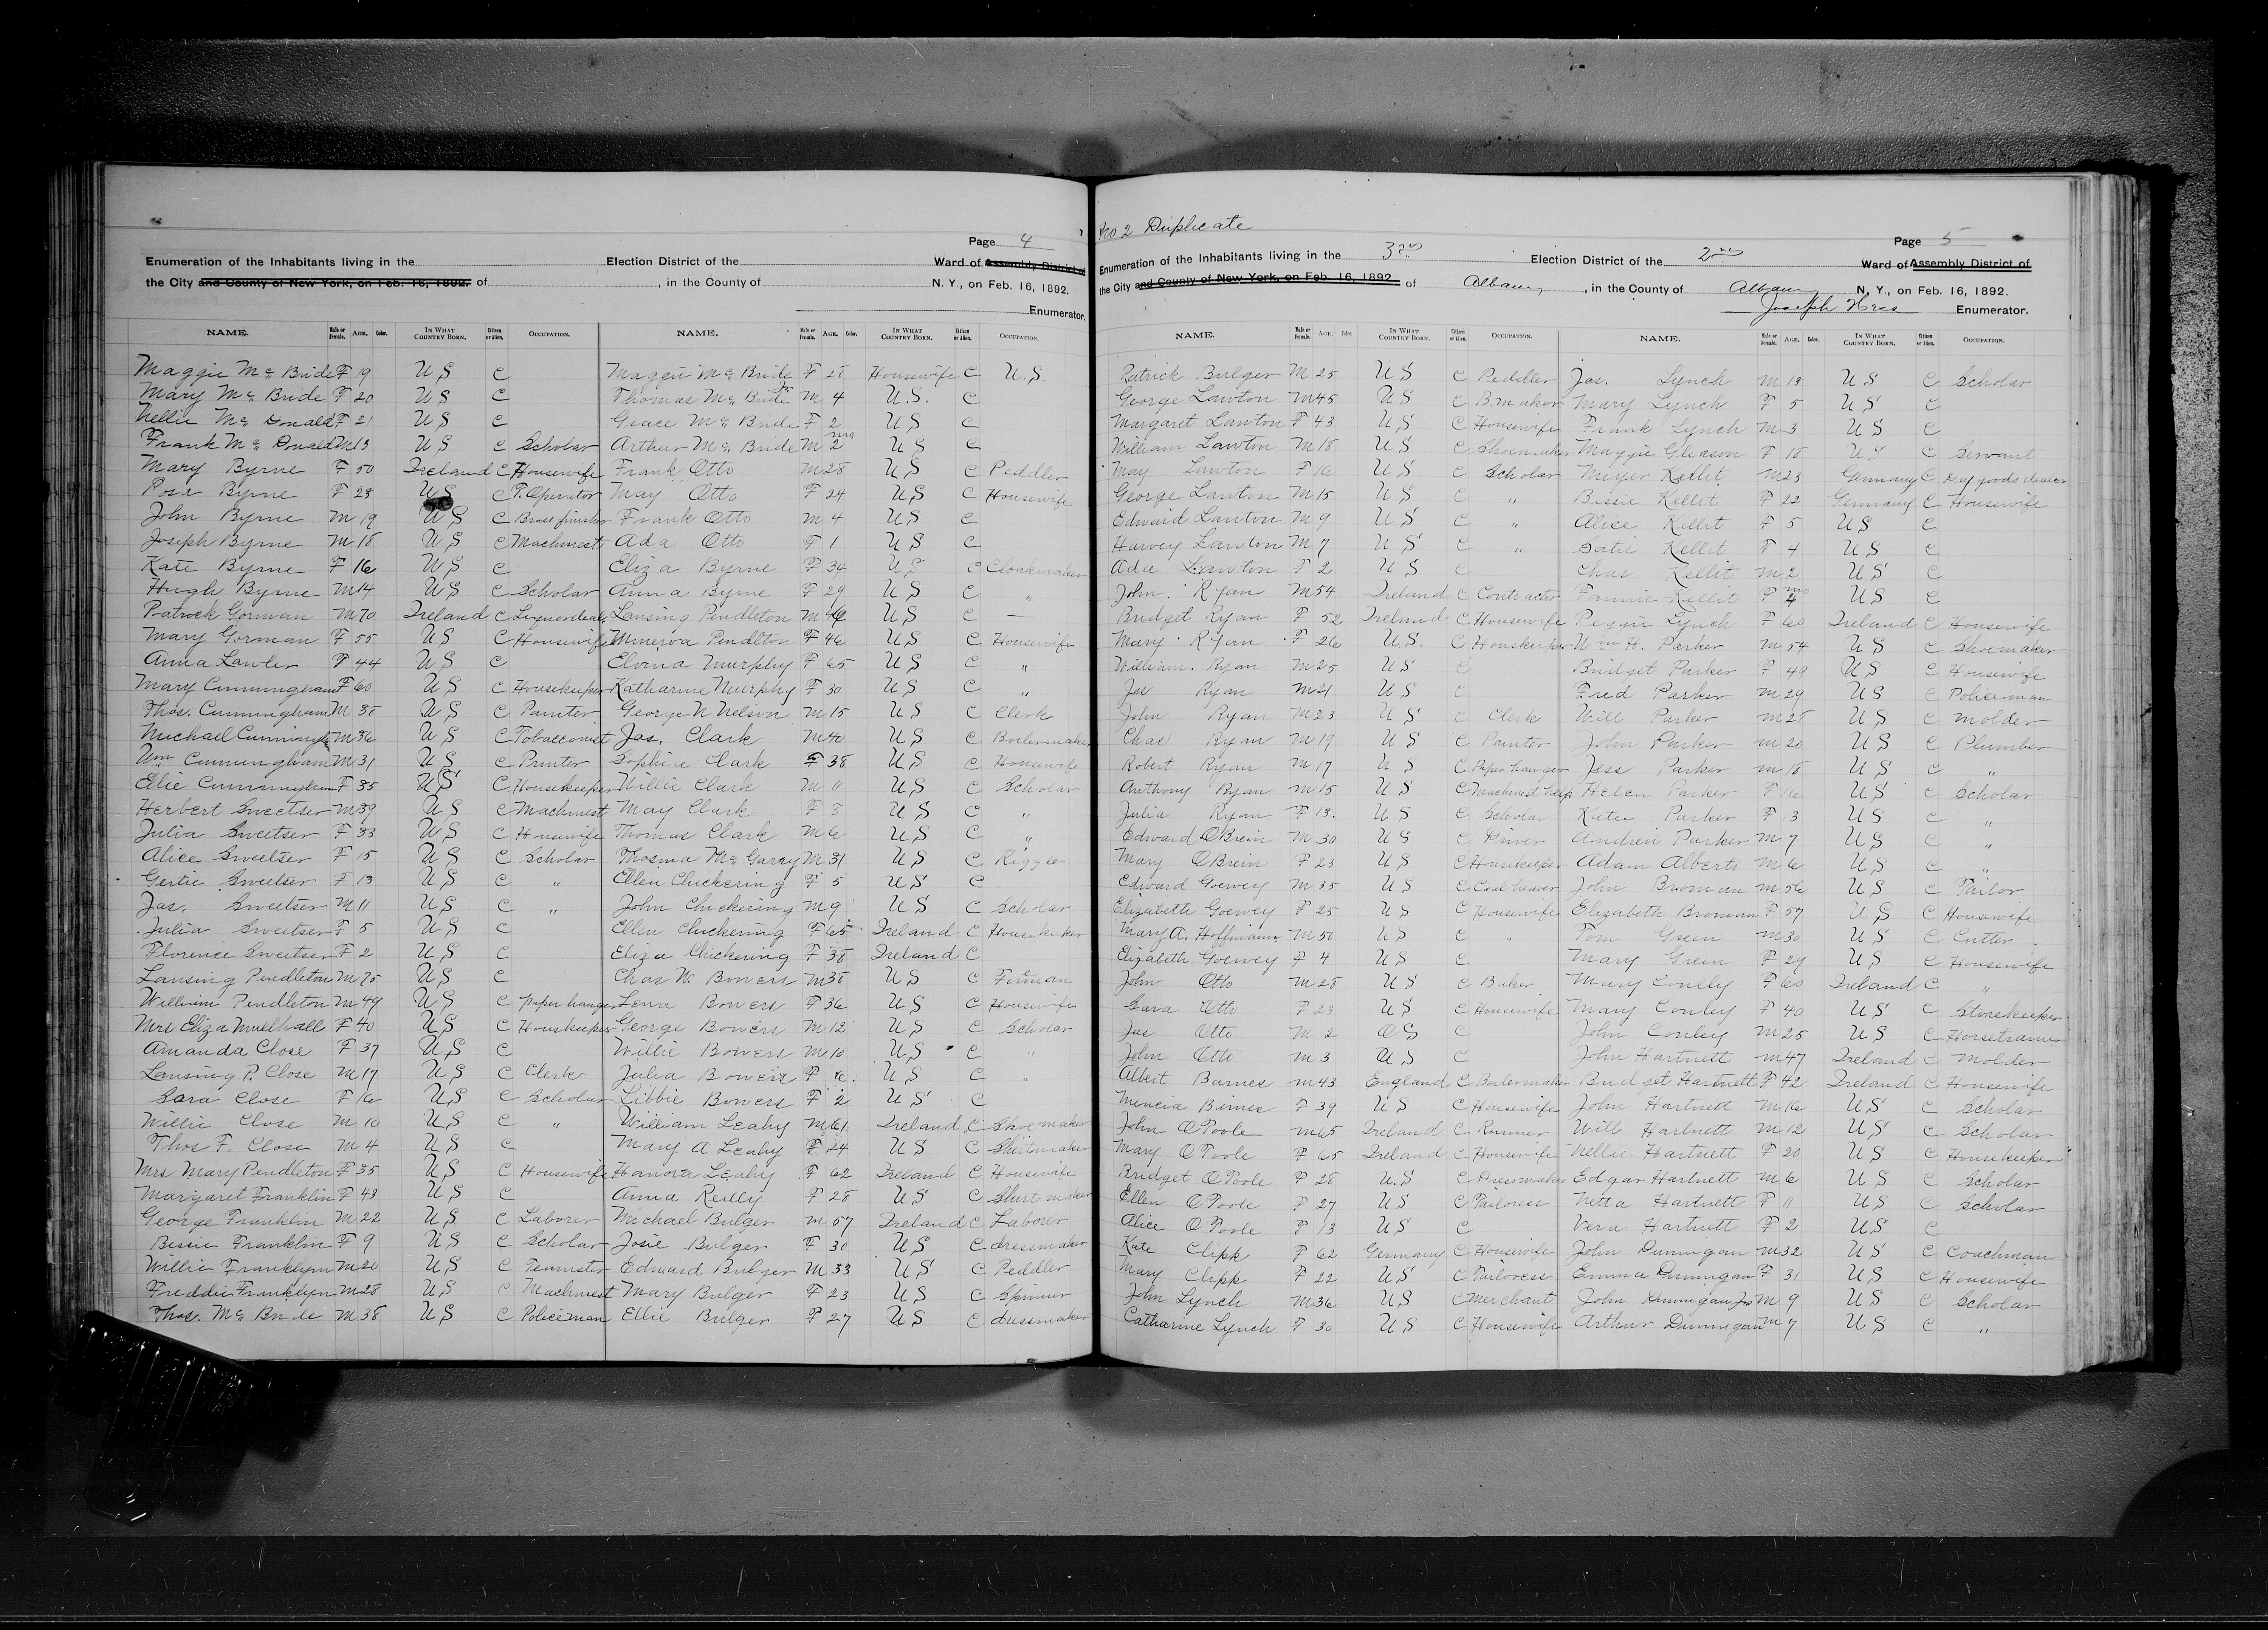 Page 4
Enumeration of the Inhabitants living in the Election District of the Ward of Assembly District of
the City and County of New York, on Feb. 16, 1892. of , in the County of N. Y., on Feb. 16, 1892.
Enumerator.
NAME. Male or Female. AGE. Color. IN WHAT COUNTRY BORN. Citizen or Alien. OCCUPATION. NAME. Male or Female. AGE. Color. IN WHAT COUNTRY BORN. Citizen or Alien. OCCUPATION.
Maggie Mc Bride F 19 U S C
Mary Mc Bride F 20 U S C
Nellie Mc Donald F 21 U S C
Frank Mc Donald M 13 U S C Scholar
Mary Byrne F 50 Ireland C Housewife
Rosa Byrne F 23 U S C T. Operator
John Byrne M 19 U S C Brass finisher
Joseph Byrne M 18 U S C Machinest
Kate Byrne F 16 U S C
Hugh Byrne M 14 U S C Scholar
Patrick Gorman M 70 Ireland C Liquordeal
Mary Gorman F 55 U S C Housewife
Anna Lawler F 44 U S C
Mary Cunningham F 60 U S C Housekeeper
Thos. Cunningham M 38 U S C Painter
Michael Cunningham M 36 U S C Tobacconist
Wm Cunningham M 31 U S C Printer
Elie Cunningham F 35 U S C Housekeeper
Herbert Sweetser M 39 U S C Machinest
Julia Sweetser F 33 U S C Housewife
Alice Sweetser F 15 U S C Scholar
Gertie Sweetser F 13 U S C "
Jas. Sweetser M 11 U S C "
Julia Sweetser F 5 U S C
Florence Sweetser F 2 U S C
Lansing Pendleton M 75 U S C
William Pendleton M 49 U S C Paper hanger
Mrs Eliza Mullhall F 40 U S C Housekeeper
Amanda Close F 37 U S C
Lansing P. Close M 17 U S C Clerk
Sara Close F 16 U S C Scholar
Willie Close M 10 U S C "
Thos F. Close M 4 U S C
Mrs Mary Pendleton F 35 U S C Housewife
Margaret Franklin F 43 U S C
George Franklin M 22 U S C Laborer
Bessie Franklin F 9 U S C Scholar
Willie Franklyn M 20 U S C Teamster
Freddie Franklyn M 28 U S C Machinest
Thos. Mc Bride M 38 U S C Policeman
Maggie Mc Bride F 28 Housewife C U.S.
Thomas Mc Bride Jr M 4 U.S. C
Grace Mc Bride F 2 U S C
Arthur Mc Bride M 2 mo U S C
Frank Otto M 28 U S C Peddler
May Otto F 24 U S C Housewife
Frank Otto M 4 U S C
Ada Otto F 1 U S C
Eliza Byrne F 34 U S C Cloakmaker
Anna Byrne F 29 U S C "
Lansing Pendleton M 46 U S C —
Minerva Pendlton F 46 U S C Housewife
Elvina Murphy F 65 U S C "
Katharine Murphy F 30 U S C "
George N Nelson M 15 U S C Clerk
Jas. Clark M 40 U S C Boilermaker
Sophia Clark F 38 U S C Housewife
Willie Clark M 11 U S C Scholar
May Clark F 8 U S C "
Thomas Clark M 6 U S C "
Thosma Mc Garry M 31 U S C Rigger
Ellen Chickering F 5 U S C
John Chickering M 9 U S C Scholar
Ellen Chickering F 65 Ireland C Housekeeker
Eliza Chickering F 38 Ireland C
Chas W. Bowers M 38 U S C Fireman
Lena Bowers F 36 U S C Housewife
George Bowers M 12 U S C Scholar
Willie Bowers M 10 U S C "
Julia Bowers F 6 U S C "
Libbie Bowers F 2 U S C
William Leahy M 61 Ireland C Shoemaker
Mary A Leahy F 24 U S C Shirtmaker
Hanora Leahy F 62 Ireland C Housewife
Anna Reilly F 28 U S C Shirt maker
Michael Bulger M 57 Ireland C Laborer
Josie Bulger F 30 U S C dressmaker
Edward Bulger M 33 U S C Peddler
Mary Bulger F 23 U S C Spinner
Ellie Bulger F 27 U S C dressmaker
No 2 Duplicate
Page 5
Enumeration of the Inhabitants living in the 3rd Election District of the 2nd Ward of Assembly District of
the City and County of New York, on Feb. 16, 1892 of Albany, in the County of Albany N. Y., on Feb. 16, 1892.
Joseph Hess Enumerator.
NAME. Male or Female. AGE. Color. IN WHAT COUNTRY BORN. Citizen or Alien. OCCUPATION. NAME. Male or Female. AGE. Color. IN WHAT COUNTRY BORN. Citizen or Alien. OCCUPATION.
Patrick Bulger M 25 U S C Peddler
George Lawton M 45 U S C B. maker
Margaret Lawton F 43 U S C Housewife
William Lawton M 18 U S C Shoemaker
May Lawton F 16 U S C Scholar
George Lawton M 15 U S C "
Edward Lawton M 9 U S C "
Harvey Lawton M 7 U S C "
Ada Lawton F 2 U S C
John. Ryan M 54 Ireland C Contractor
Bridget Ryan F 52 Ireland C Housewife
Mary Ryan F 26 U S. C Houskeeper
William. Ryan M 25 U S C
Jas Ryan M 21 U S C
John Ryan M 23 U S C Clerk
Chas Ryan M 19 U S C Painter
Robert Ryan M 17 U S C Paper hanger
Anthony Ryan M 15 U S C Machinest help
Julia Ryan F 13. U S C Scholar
Edward OBrein M 30 U S C Driver
Mary OBrein F 23 U S C Housekeeper
Edward Goewey M 35 U S C Coal heaver
Elizabeth Goewey F 25 U S C Housewife
Mary A. Hoffmann M 50 U S C "
Elizabeth Goewey F 4 U S C
John Otto M 28 U S C Baker
Sara Otto F 23 U S C Housewife
Jas Otto M 2 U S C
John Otto M 3 U S C
Albert Barnes M 43 England C Boilermaker
Mencia Barnes F 39 U S C Housewife
John OToole M 65 Ireland C Runner
Mary OToole F 65 Ireland C Housewife
Bridget OToole F 28 U.S C Dressmaker
Ellen OToole F 27 U S C Tailoress
Alice OToole F 13 U S C
Kate Clipp F 62 Germany C Housewife
Mary Clipp F 22 U S C Tailoress
John Lynch M 36 U S C Merchant
Catharine Lynch F 30 U S C Housewife
Jas. Lynch M 13 U S C Scholar
Mary Lynch F 5 U S C
Frank Lynch M 3 U S C
Maggie Gleason F 18 U S C Servant
Meyer Kellet M 23 Germany C Dry goods dealer
Bessie Kellet F 22 Germany C Housewife
Alice Kellet F 5 U S C
Satie Kellet F 4 U S C
Chas Kellit M 2 U S C
Fannie Kellit F 4 mo U S C
Peggie Lynch F 60 Ireland C Housewife
Wm H. Parker M 54 U S C Shoemaker
Bridget Parker F 49 U S C Housewife
Fred Parker M 29 U S C Policeman
Will Parker M 28 U S C Molder
John Parker M 20 U S C Plumber
Jess Parker M 18 U S C "
Helen Parker F 16 U S C Scholar
Katie Parker F 13 U S C "
Andrein Parker M 7 U S C "
Adam Alberts M 6 U S C "
John Broman M 56 U S C Tailor
Elizabeth Broman F 57 U S C Housewife
Tom Green M 30 U S C Cutter
Mary Green F 29 U S C Housewife
Mary Conely F 60 Ireland C "
Mary Conley F 40 U S C Storekeeper
John Conley M 25 U S C Horsetrainer
John Hartnett M 47 Ireland C Molder
Bridget Hartnett F 42 Ireland C Housewife
John Hartnett M 16 U S C Scholar
Will Hartnett M 12 U S C Scholar
Nellie Hartnett F 20 U S C Housekeeper
Edgar Hartnett M 6 U S C Scholar
Netta Hartnett F 11 U S C Scholar
Vera Hartnett F 2 U S C
John Dunnigan M 32 U S C Coachman
Emma Dunnigan F 31 U S C Housewife
John Dunnigan Jr M 9 U S C Scholar
Arthur Dunnigan M 7 U S C "